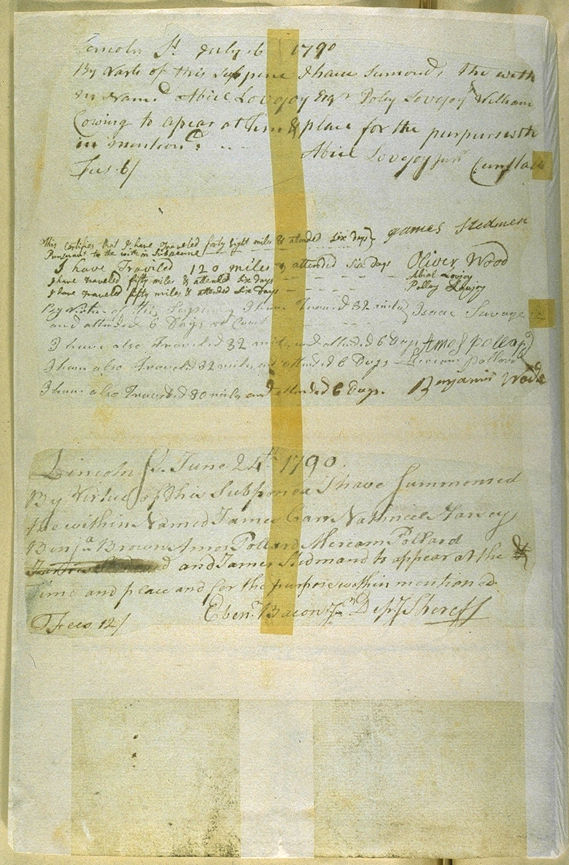 Lincoln Ss July 6 1790
By Vartu of this Subpine I have Sumond, the with
in Namd Abiel Lovejoy Esqr Poley Lovejoy William
Cowing to apear at time & place for the purpurs with
in mentiond
Abiel Lovejoy junr Cunstable
Fus. 6/
James Stedmen
This Certifies that I have Traveled forty Eight miles & attended six Days
Pursuant to the with in Subpoena
I have Traveled 120 miles & attended Six Days Oliver Wood
I have Traveled fifty miles & attended Six Days Abial Lovejoy
I have Traveled fifty miles & attended Six Days Polley Lovejoy
By virtue of this I have Traveled 32 miles Isaac Savage
and attended 6 Days at Court
I have also Traveled 32 miles and attended 6 Days Amos Polard
I have also Traveled 32 miles and attended 6 Days Pollard
I have also Traveled 80 miles and attended 6 Days. Benjamin Wode
Lincoln Ss. June 24th 1790.
By Virtue of this Subponea I have Summoned
the within Named James Carr Nathaniel Varney
Benja Brown Amos Pollard Mercam Pollard
and James Stedmand to appear at the
time and place and for the purpose within mentioned
Ebenr Bacon Jr Depy Shereff
Fees 12/